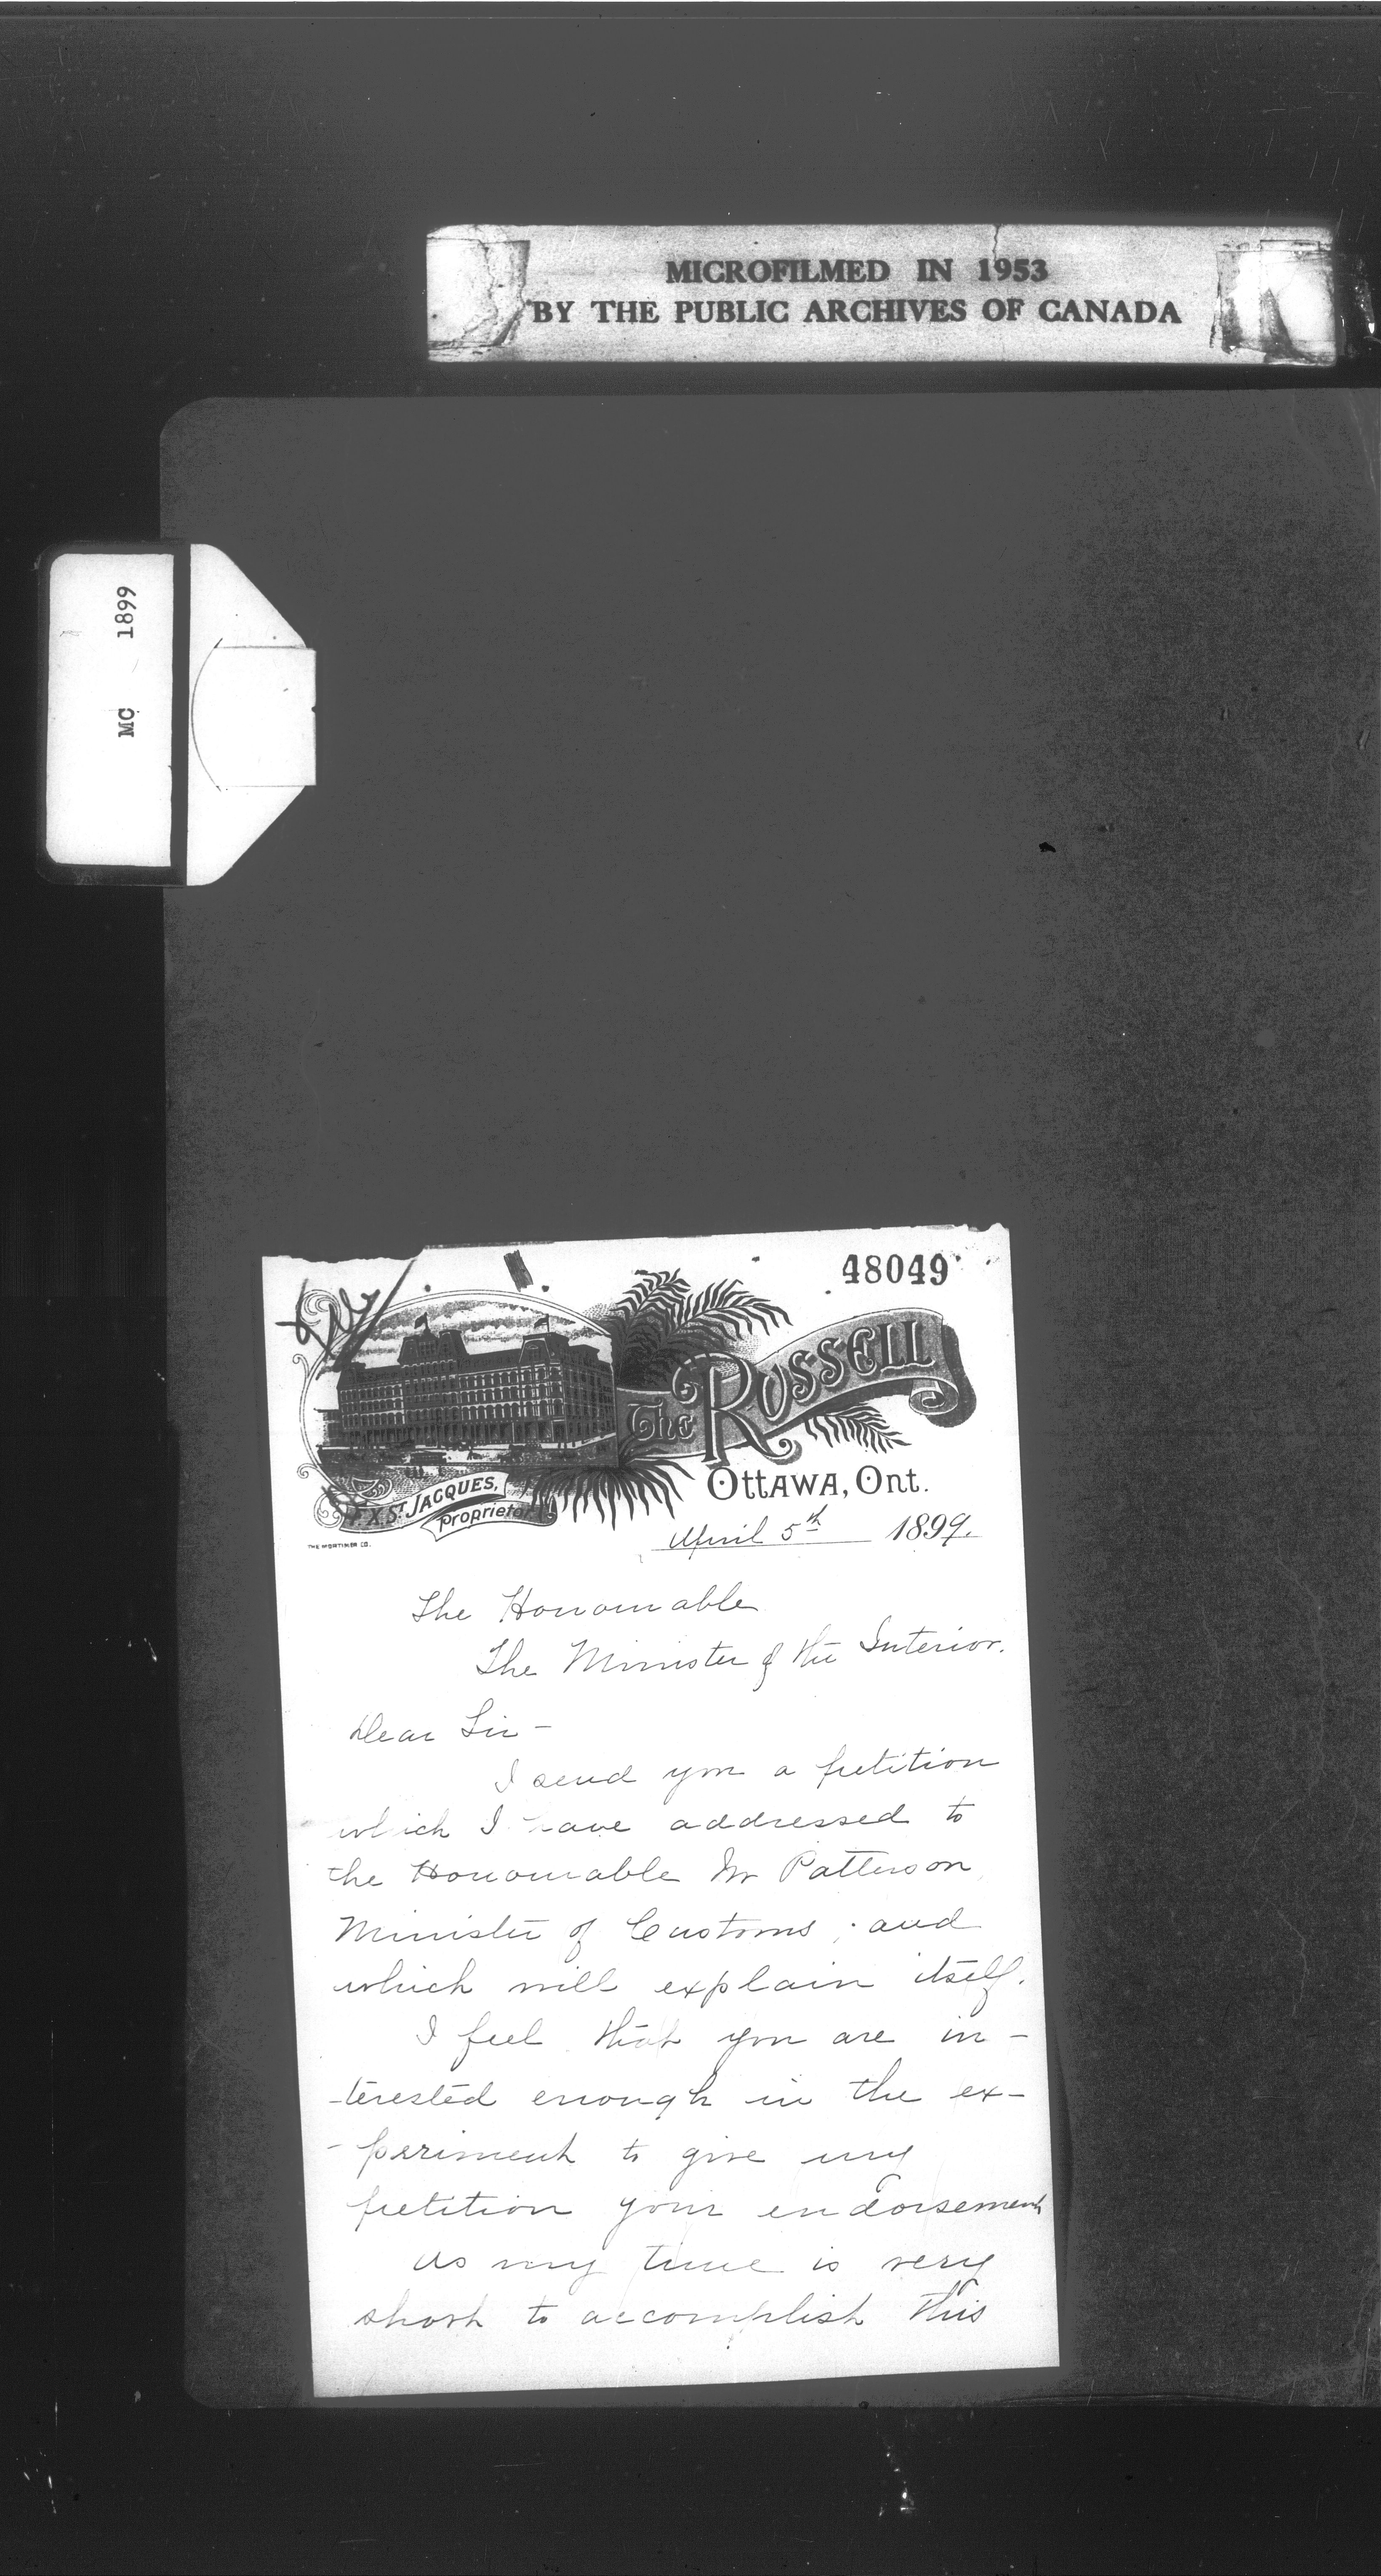 MICROFILMED IN 1953
BY THE PUBLIC ARCHIVES OF CANADA
MC 1899
48049
The RUSSELL
OTTAWA, ONT.
F. X. ST JACQUES,
Proprietor.
THE MORTIMER CO.
April 5th 1899.
The Honourable
The Minister of the Interior.
Dear Sir -
I send you a petition
which I have addressed to
the Honourable Mr Patterson
Minister of Customs; and
which will explain itself.
I feel that you are in-
-terested enough in the ex-
-periment to give my
petition your endorsement
As my time is very
short to accomplish this